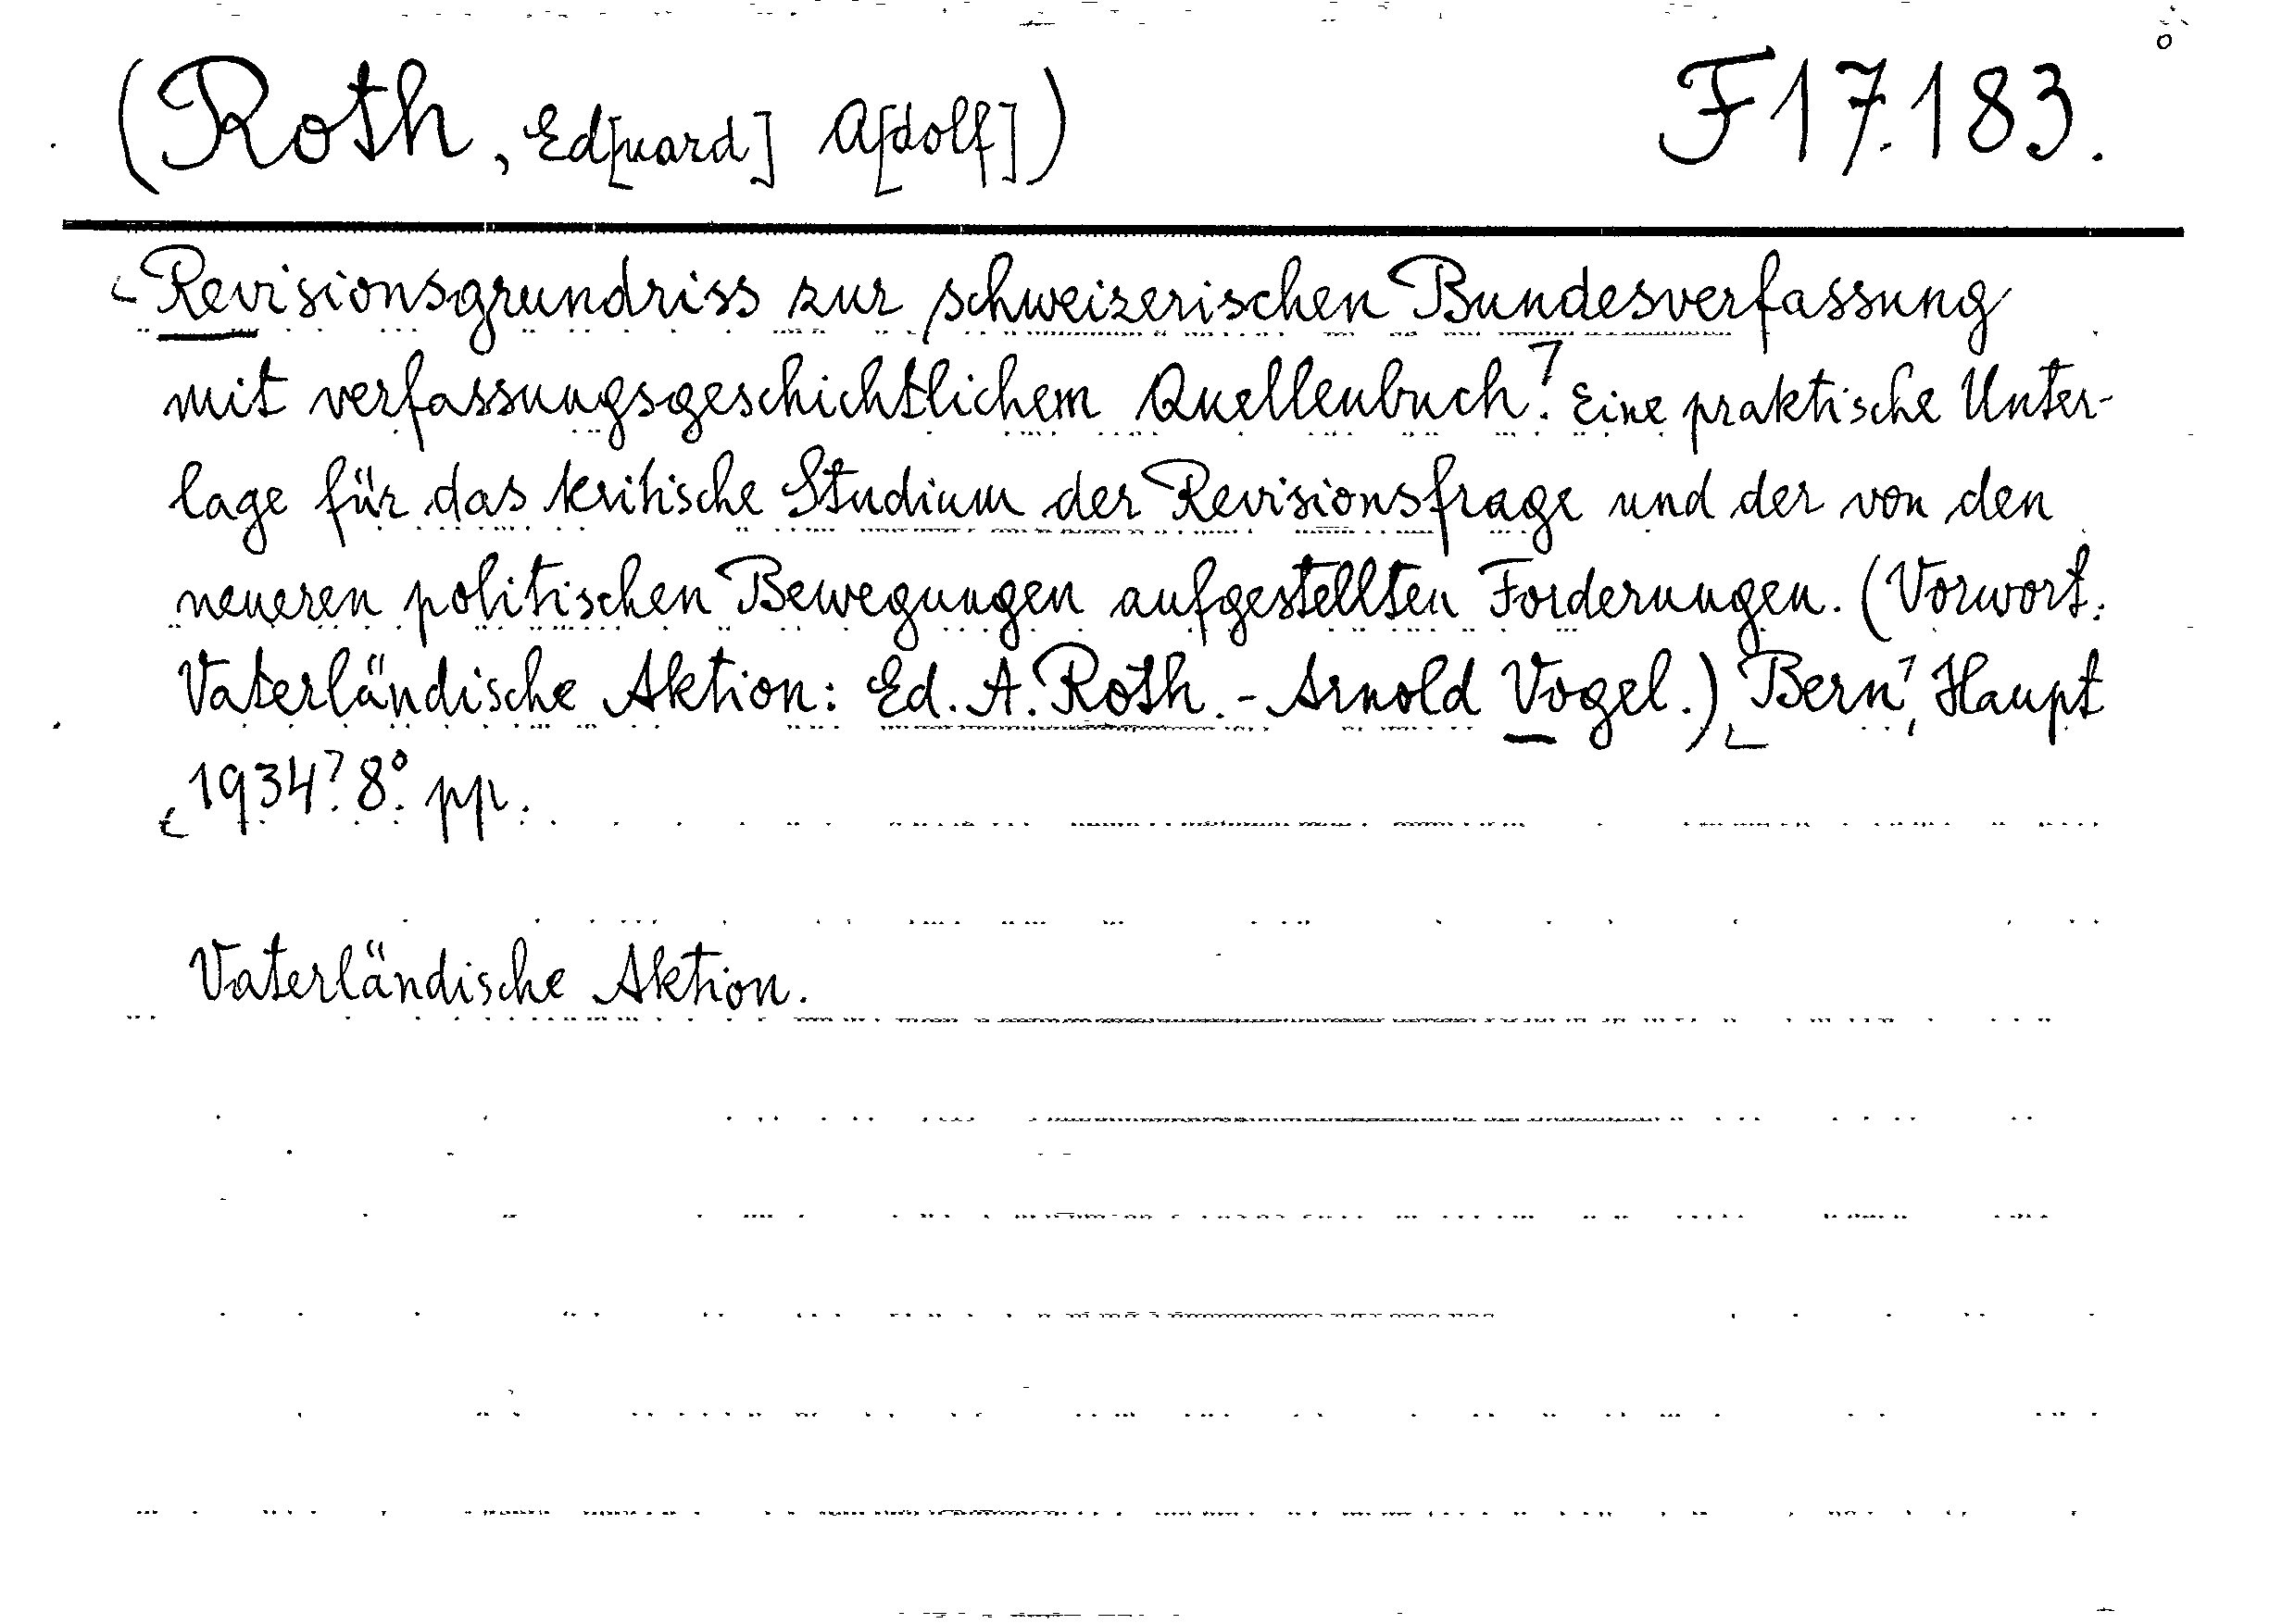 (Roth, Ed[uard] A[dolf]) F 17.183.
⌞Revisionsgrundriss zur schweizerischen Bundesverfassung
mit verfassungsgeschichtlichem Quellenbuch⌝. Eine praktische Unter-
lage für das kritische Studium der Revisionsfrage und der von den
neueren politischen Bewegungen aufgestellten Forderungen. (Vorwort:
Vaterländische Aktion: Ed. A. Roth. - Arnold Vogel.) ⌞Bern⌝, Haupt
⌞1934⌝. 8°. pp.
Vaterländische Aktion.